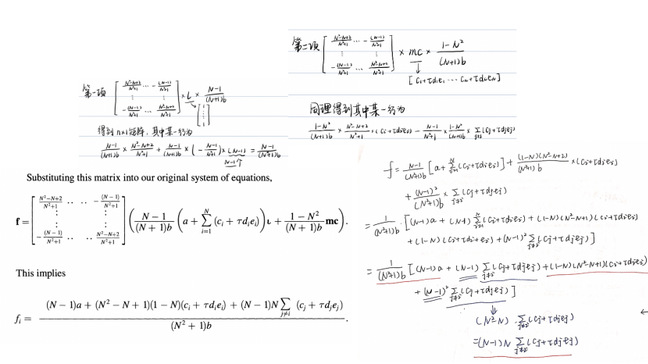 第一项 [ (N²-N+2)/(N²+1) ... -(N-1)/(N²+1) ; ⋮ ⋮ ; -(N-1)/(N²+1) ... (N²-N+2)/(N²+1) ] × L × (N-1)/((N+1)b)
[ 1 ⋮ 1 ]
得到 N×1 矩阵，其中某一行为
(N-1)/((N+1)b) × (N²-N+2)/(N²+1) + (N-1)/((N+1)b) × (-(N-1)/(N²+1)) × (N-1) = (N-1)/((N²+1)b)
N-1个
第二项 [ (N²-N+2)/(N²+1) ... -(N-1)/(N²+1) ; ⋮ ⋮ ; -(N-1)/(N²+1) ... (N²-N+2)/(N²+1) ] × mc × (1-N²)/((N+1)b)
↓
[ C₁+τd₁e₁ ... C_N+τd_Ne_N ]
同理得到其中某一行为
(1-N²)/((N+1)b) × (N²-N+2)/(N²+1) × (Ci+τdiei) - (N-1)/(N²+1) × (1-N²)/((N+1)b) × Σ_{j≠i} (Cj+τdjej)
Substituting this matrix into our original system of equations,
f = [ (N²-N+2)/(N²+1) .. .. -(N-1)/(N²+1) ; ⋮ ⋮ ; ⋮ ⋮ ; -(N-1)/(N²+1) .. .. (N²-N+2)/(N²+1) ] ( (N-1)/((N+1)b) ( a + Σ_{i=1}^{N} (c_i + τd_ie_i) ) ι + (1-N²)/((N+1)b) mc ).
This implies
f_i = ( (N-1)a + (N²-N+1)(1-N)(c_i + τd_ie_i) + (N-1)N Σ_{j≠i} (c_j + τd_je_j) ) / ( (N²+1)b ).
f = (N-1)/((N²+1)b) [ a + Σ^N (Ci+τdiei) ] + (1-N)(N²-N+2)/((N²+1)b) × (Ci+τdiei)
+ (N-1)²/((N²+1)b) × Σ_{j≠i} (Cj+τdjej)
= 1/((N²+1)b) [ (N-1)a + (N-1) Σ^N (Ci+τdiei) + (1-N)(N²-N+1)(Ci+τdiei)
+ (1-N)(Ci+τdiei) + (N-1)² Σ_{j≠i} (Cj+τdjej) ]
= 1/((N²+1)b) [ (N-1)a + (N-1) Σ_{j≠i} (Cj+τdjej) + (1-N)(N²-N+1)(Ci+τdiei)
+ (N-1)² Σ_{j≠i} (Cj+τdjej) ]
↓
(N²-N) · Σ_{j≠i} (Cj+τdjej)
= (N-1)N Σ_{j≠i} (Cj+τdjej)
←